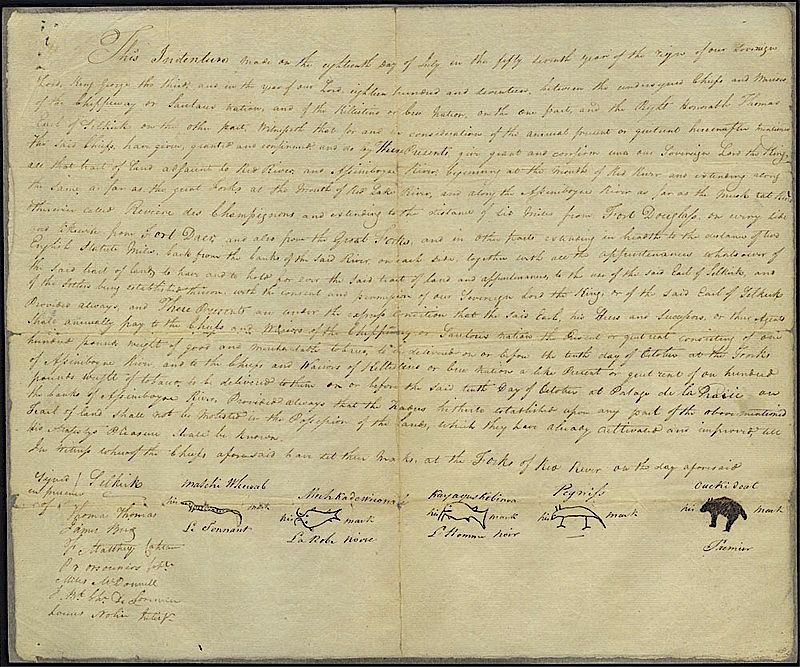 This Indenture made on the eighteenth day of July in the fifty seventh year of the reign of our Sovereign
Lord King George the third, and in the year of our Lord eighteen hundred and seventeen, between the undersigned Chiefs and Warriors
of the Chippeway or Saulteaux Nation, and of the Killistine or Cree Nation, on the one part, and the Right Honorable Thomas
Earl of Selkirk on the other part. Witnesseth that for and in consideration of the annual present or quitrent hereinafter mentioned
the said Chiefs, have given, granted and confirmed and do by These Presents, give grant and confirm unto our Sovereign Lord the King
all that tract of land adjacent to Red River, and Assiniboyne River, beginning at the mouth of Red River and extending along
the same as far as the great Forks at the Mouth of Red Lake River, and along the Assiniboyne River as far as the Musk rat River
otherwise called Riviere des Champignons and extending to the distance of six Miles from Fort Douglass, on every side
and likewise from Fort Daer, and also from the Great Forks, and in other parts extending in breadth to the distance of two
English Statute Miles, back from the banks of the said River, on each side, together with all the appurtenances whatsoever of
the said tract of land, to have and to hold for ever the said tract of land and appurtenances, to the use of the said Earl of Selkirk, and
of the Settlers being established thereon, with the consent and permission of our Sovereign Lord the King, or of the said Earl of Selkirk
Provided always, and These Presents are under the express condition that the said Earl, his Heirs and Successors, or their Agents
shall annually pay to the Chiefs and Warriors of the Chippeway or Saulteaux nation the Present or quit rent consisting of one
hundred pounds weight of good and merchantable tobacco, to be delivered on or before the tenth day of October at the Forks
of Assiniboyne River, and to the Chiefs and Warriors of Killistine or Cree Nation a like Present or quit rent of one hundred
pounds weight of tobacco, to be delivered to them on or before the said tenth Day of October at Portage de la Prairie on
the banks of Assiniboyne River. Provided always that the traders hitherto established upon any part of the above mentioned
Tract of land shall not be molested in the Possession of the lands, which they have already cultivated and improved, till
His Majestys Pleasure shall be known.
In witness whereof the Chiefs aforesaid have set their Marks, at the Forks of Red River on the day aforesaid
Signed Selkirk
in presence
of
Thomas Thomas
James Bird
F. Matthey Captain
P. D'orsonnens Capt.
Miles McDonnell
J. Bte. Chs. De Lorimier
Louis Nolin Interpr.
Matchi Whewab
his mark
Le Sonnant
Mechkadewikonaie
his mark
La Robe Noire
Kayajieskebinoa
his mark
L'Homme Noir
Pegwiss
his mark
Ouckidoat
his mark
Premier